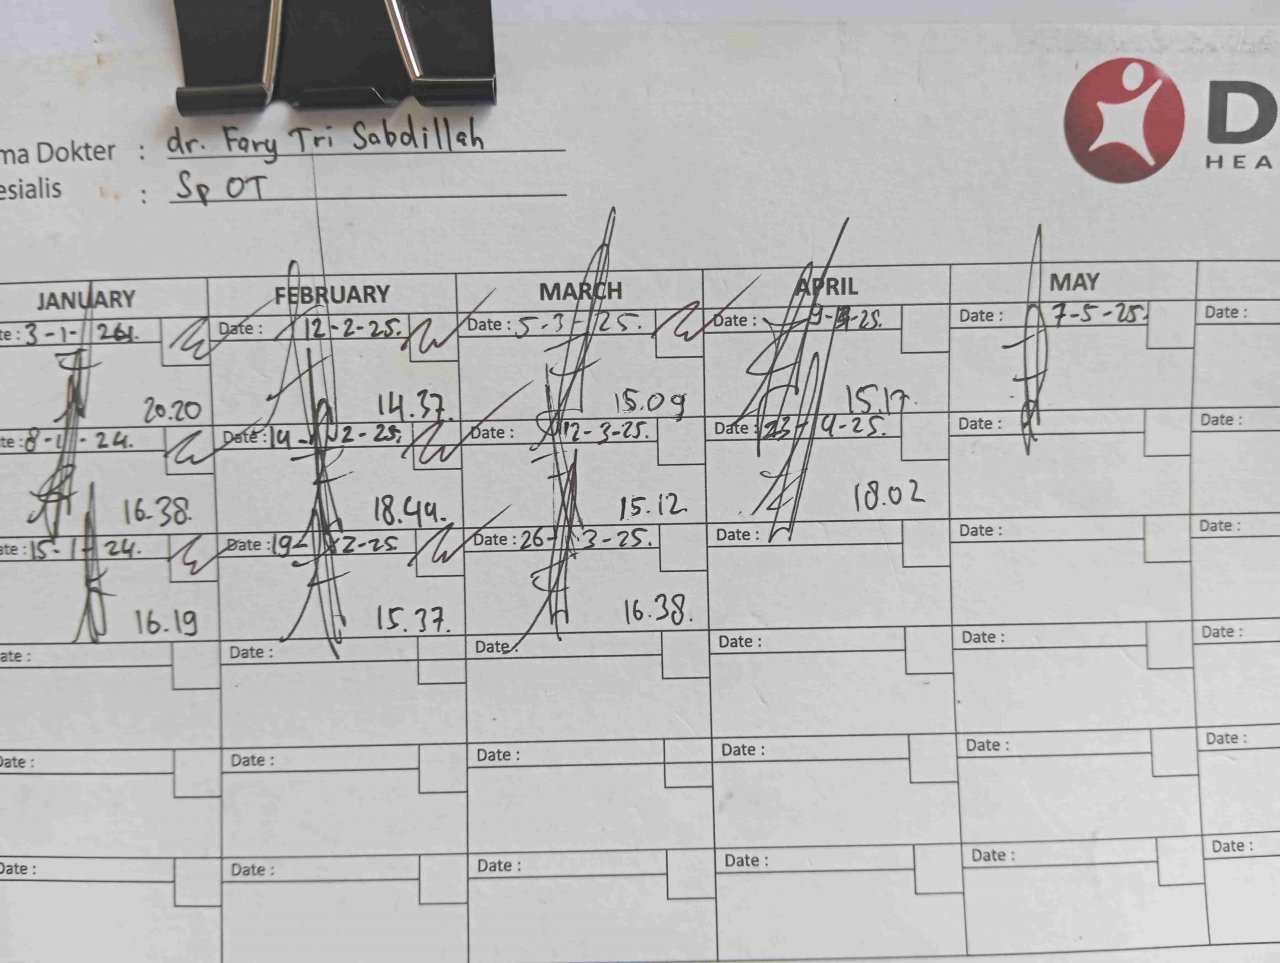 ma Dokter : dr. Fary Tri Sabdillah
esialis : Sp OT
D
HEA
JANUARY FEBRUARY MARCH APRIL MAY
te : 3-1- Date : 12-2-25. Date : 5-3-25. Date : 9-4-25. Date : 7-5-25. Date :
20.20 14.37. 15.09 15.17.
te : 8-1-24. Date : 14-2-25. Date : 12-3-25. Date : 23-4-25. Date : Date :
16.38. 18.44. 15.12. 18.02
ate : 15-1-24. Date : 19-2-25 Date : 26-3-25. Date : Date : Date :
16.19 15.37. 16.38.
ate : Date : Date : Date : Date : Date :
Date : Date : Date : Date : Date : Date :
Date : Date : Date : Date : Date : Date :